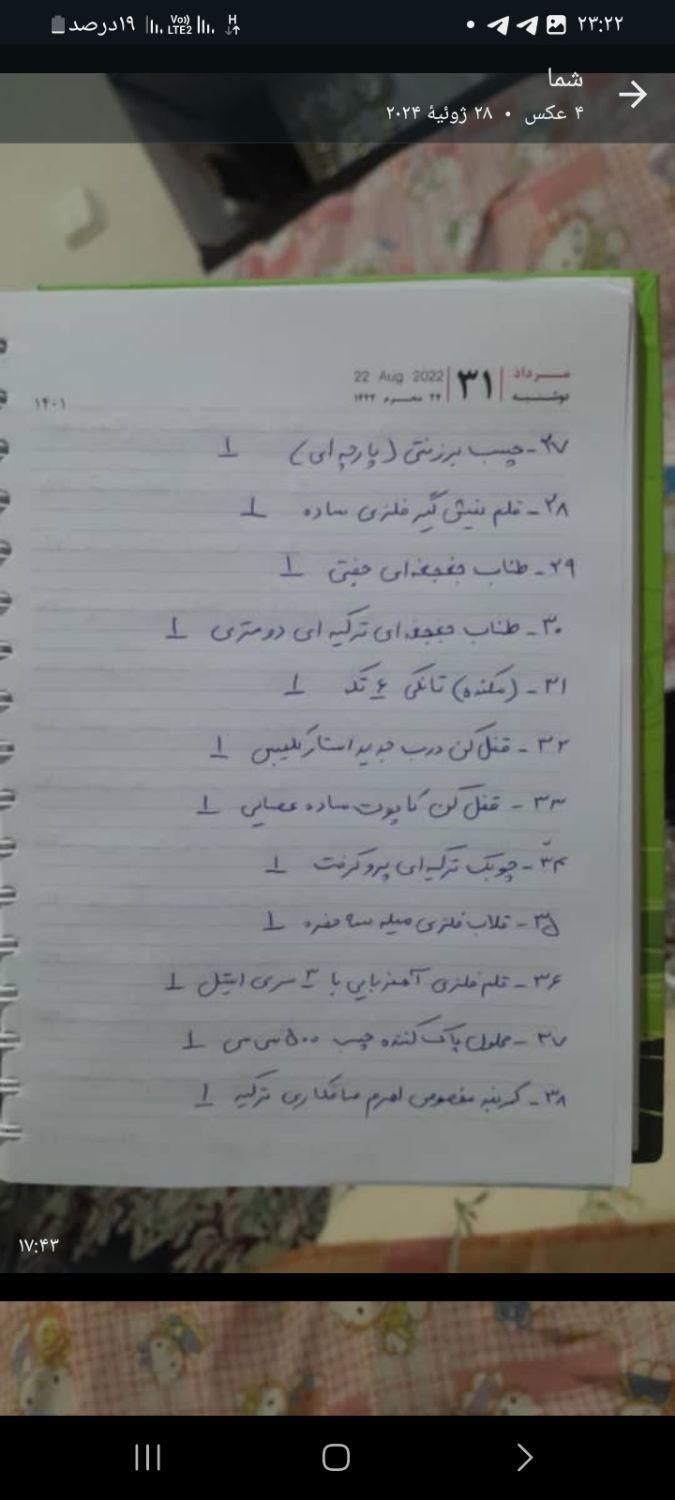 ۲۳:۲۲
H
Vo))
LTE2
۱۹درصد
شما
۴ عکس • ۲۸ ژوئیهٔ ۲۰۲۴
مرداد
دوشنبه
۳۱
22 Aug 2022
۲۴ محرم ۱۴۴۴
۱۴۰۱
۲۷- چسب برزنتی (پارچه ای) ۱
۲۸- قلم نیش گیر فلزی ساده ۱
۲۹- طناب جغجغه ای جفتی ۱
۳۰- طناب جغجغه ای ترکیه ای دو متری ۱
۳۱- (مکنده) تانکی ۶ تکه ۱
۳۲- قفل کن درب جدید استار پلیس ۱
۳۳- قفل کن کاپوت ساده عصایی ۱
۳۴- چوبک ترکیه ای پروکرفت ۱
۳۵- قلاب فلزی میله سه حفره ۱
۳۶- قلم فلزی آهنربایی با ۳ سری استیل ۱
۳۷- محلول پاک کننده چسب ۵۰۰ سی سی ۱
۳۸- گیره مخصوص اهرم صافکاری ترکیه ۱
۱۷:۴۳